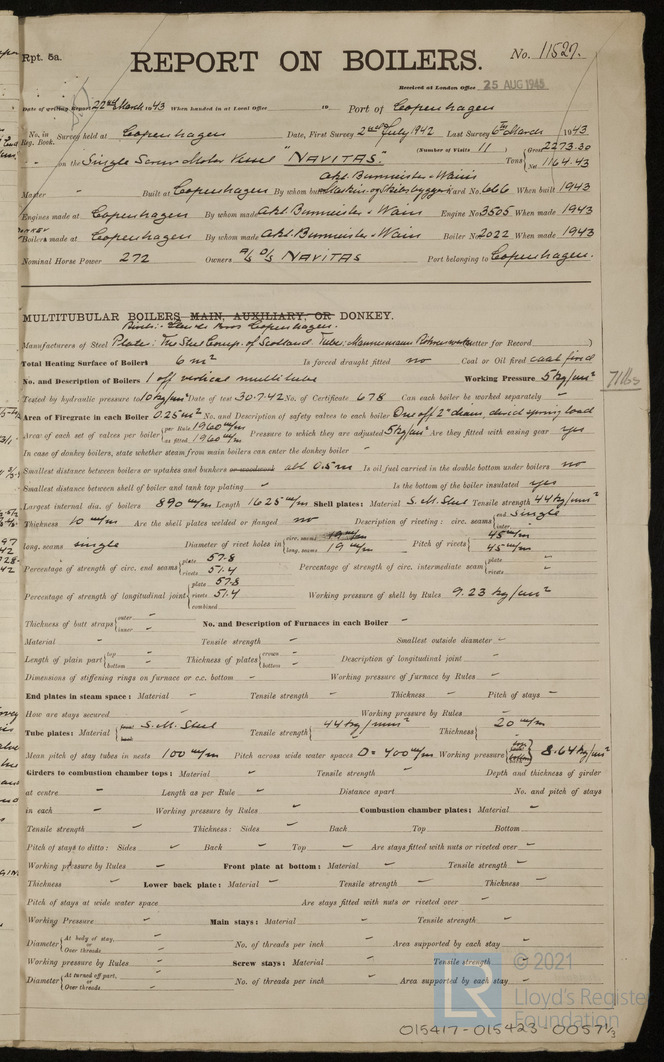 Rpt. 5a.
REPORT ON BOILERS.
No. 11527.
Received at London Office 25 AUG 1945
Date of writing Report 22nd March 1943 When handed in at Local Office 19 Port of Copenhagen
No. in Reg. Book. Survey held at Copenhagen Date, First Survey 2nd July 1942 Last Survey 6th March 1943
(Number of Visits 11) Gross 2273.30
on the Single Screw Motor Vessel "NAVITAS". Tons Net 1164.43
Akt. Burmeister & Wain's
Master - Built at Copenhagen By whom built Maskin- og Skibsbyggeri Yard No. 666 When built 1943
Engines made at Copenhagen By whom made Akt. Burmeister & Wain Engine No 3505 When made 1943
Boilers made at Copenhagen By whom made Akt. Burmeister & Wain Boiler No 2022 When made 1943
Nominal Horse Power 272 Owners A/S D/S NAVITAS Port belonging to Copenhagen.
MULTITUBULAR BOILERS MAIN, AUXILIARY, OR DONKEY.
Manufacturers of Steel Plates: The Steel Comp. of Scotland Tubes: Mannesmann Röhrenwerke (Letter for Record )
Total Heating Surface of Boilers 6 m² Is forced draught fitted no Coal or Oil fired coal fired
No. and Description of Boilers 1 off vertical multitube Working Pressure 5 kg/cm² 71 lbs
Tested by hydraulic pressure to 10 kg/cm² Date of test 30.7.42 No. of Certificate 678 Can each boiler be worked separately -
Area of Firegrate in each Boiler 0.25 m² No. and Description of safety valves to each boiler One off 2" diam. direct spring load
Area of each set of valves per boiler per Rule 1960 m/m as fitted 1960 m/m Pressure to which they are adjusted 5 kg/cm² Are they fitted with easing gear yes
In case of donkey boilers, state whether steam from main boilers can enter the donkey boiler -
Smallest distance between boilers or uptakes and bunkers or woodwork abt 0.5 m Is oil fuel carried in the double bottom under boilers no
Smallest distance between shell of boiler and tank top plating - Is the bottom of the boiler insulated yes
Largest internal dia. of boilers 890 m/m Length 1625 m/m Shell plates: Material S.M. Steel Tensile strength 44 kg/mm²
Thickness 10 m/m Are the shell plates welded or flanged no Description of riveting: circ. seams end single inter. -
long. seams single Diameter of rivet holes in circ. seams 19 m/m long. seams 19 m/m Pitch of rivets 45 m/m 45 m/m
Percentage of strength of circ. end seams plate 57.8 rivets 51.4 Percentage of strength of circ. intermediate seam plate - rivets -
Percentage of strength of longitudinal joint plate 57.8 rivets 51.4 combined Working pressure of shell by Rules 9.23 kg/cm²
Thickness of butt straps outer - inner - No. and Description of Furnaces in each Boiler -
Material - Tensile strength - Smallest outside diameter -
Length of plain part top - bottom - Thickness of plates crown - bottom - Description of longitudinal joint -
Dimensions of stiffening rings on furnace or c.c. bottom - Working pressure of furnace by Rules -
End plates in steam space: Material - Tensile strength - Thickness - Pitch of stays -
How are stays secured - Working pressure by Rules -
Tube plates: Material front back S.M. Steel Tensile strength 44 kg/mm² Thickness 20 m/m
Mean pitch of stay tubes in nests 100 m/m Pitch across wide water spaces D = 400 m/m Working pressure front back 8.64 kg/cm²
Girders to combustion chamber tops: Material - Tensile strength - Depth and thickness of girder
at centre - Length as per Rule - Distance apart No. and pitch of stays
in each - Working pressure by Rules - Combustion chamber plates: Material -
Tensile strength - Thickness: Sides - Back Top - Bottom
Pitch of stays to ditto: Sides - Back - Top - Are stays fitted with nuts or riveted over -
Working pressure by Rules - Front plate at bottom: Material - Tensile strength -
Thickness - Lower back plate: Material - Tensile strength - Thickness -
Pitch of stays at wide water space Are stays fitted with nuts or riveted over -
Working Pressure - Main stays: Material - Tensile strength -
Diameter At body of stay, or Over threads - No. of threads per inch - Area supported by each stay -
Working pressure by Rules - Screw stays: Material - Tensile strength -
Diameter At turned off part, or Over threads - No. of threads per inch - Area supported by each stay -
LR © 2021
Lloyd's Register
Foundation
015417-015423-0057 1/3